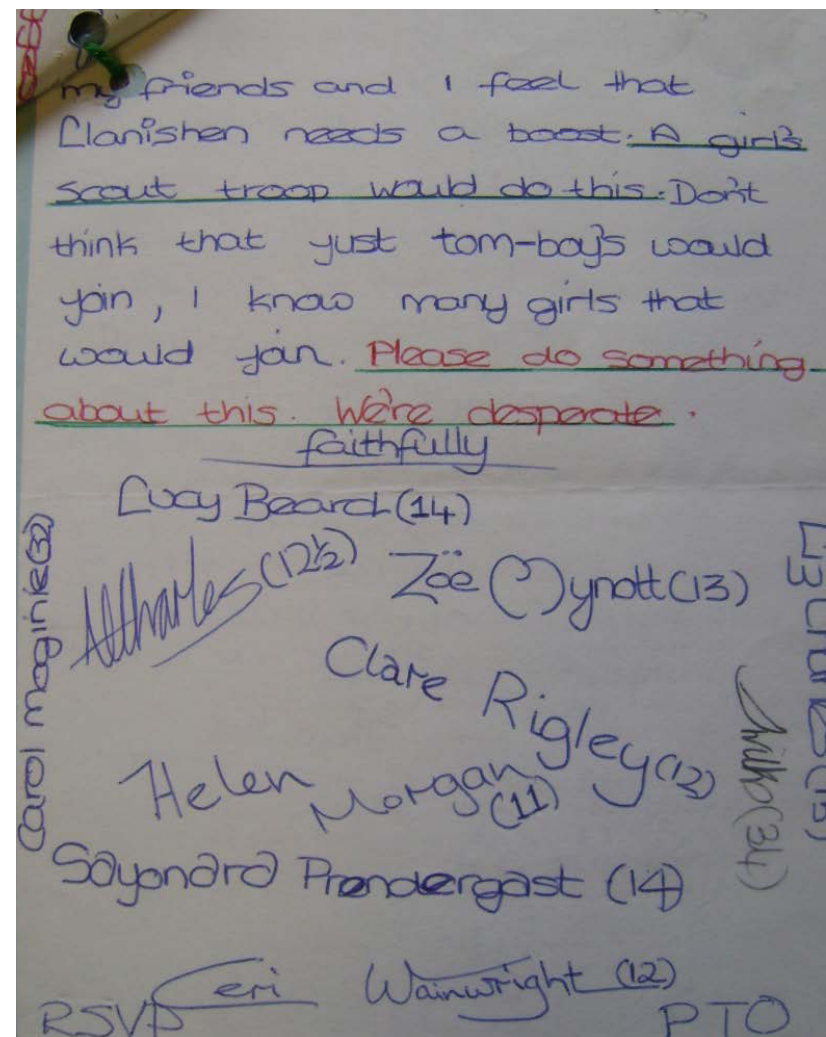 my friends and I feel that
Llanishen needs a boost. A girl's
scout troop would do this. Don't
think that just tom-boy's would
join, I know many girls that
would join. Please do something
about this. We're desperate.
faithfully
Lucy Beard (14)
(12½)
Zöe Mynott (13)
Clare Rigley (12)
Helen Morgan (11)
Sayonara Prendergast (14)
Ceri Wainwright (12)
RSVP PTO
Carol Maginie (32)
(34)
(15)